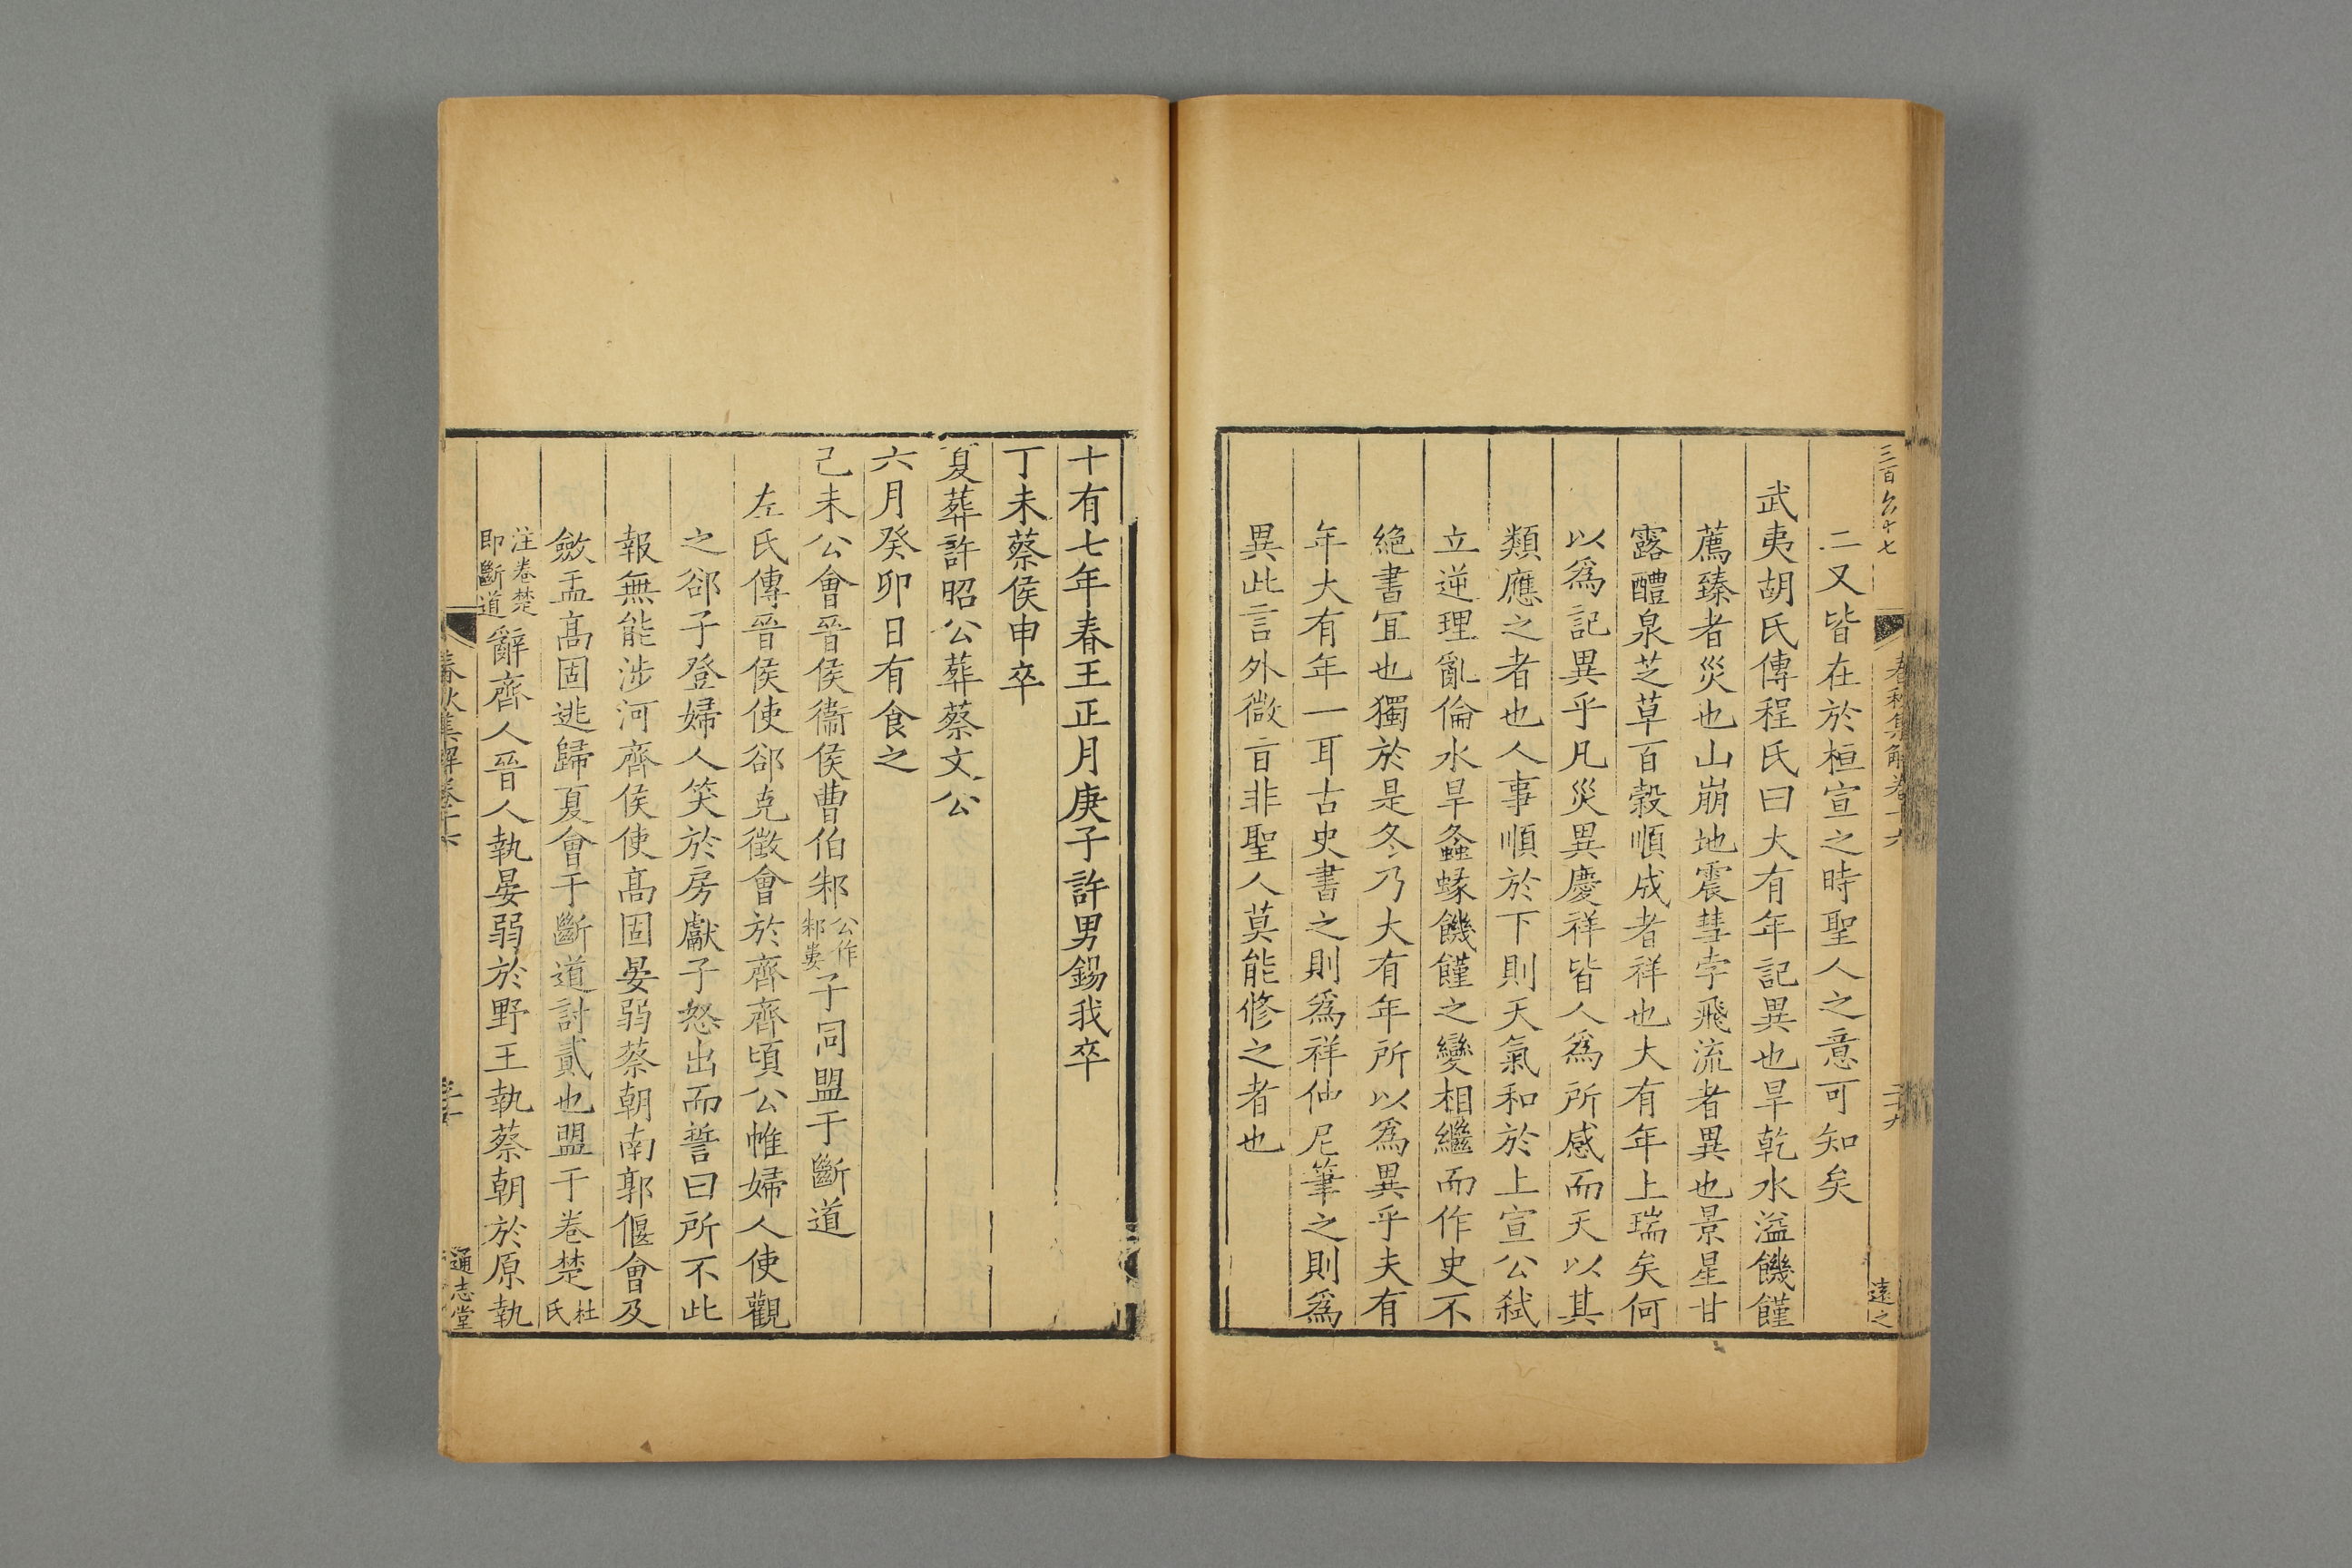 三百六十七
春秋集解卷十六
二十九
遠之
二又皆在於桓宣之時聖人之意可知矣
武夷胡氏傳程氏曰大有年記異也旱乾水溢饑饉
薦臻者災也山崩地震彗孛飛流者異也景星甘
露醴泉芝草百穀順成者祥也大有年上瑞矣何
以爲記異乎凡災異慶祥皆人爲所感而天以其
類應之者也人事順於下則天氣和於上宣公弑
立逆理亂倫水旱螽蝝饑饉之變相繼而作史不
絶書冝也獨於是冬乃大有年所以爲異乎夫有
年大有年一耳古史書之則爲祥仲尼筆之則爲
異此言外微㫖非聖人莫能修之者也
十有七年春王正月庚子許男錫我卒
丁未蔡侯申卒
夏葬許昭公葬蔡文公
六月癸卯日有食之
己未公會晉侯衞侯曹伯邾公作邾婁子同盟于斷道
左氏傳晉侯使郤克徵會於齊齊頃公帷婦人使觀
之郤子登婦人笑於房獻子怒出而誓曰所不此
報無能涉河齊侯使髙固晏弱蔡朝南郭偃會及
斂盂髙固逃歸夏會于斷道討貳也盟于卷楚杜氏
注卷楚即斷道辭齊人晉人執晏弱於野王執蔡朝於原執
春秋集解卷十六
三十
通志堂